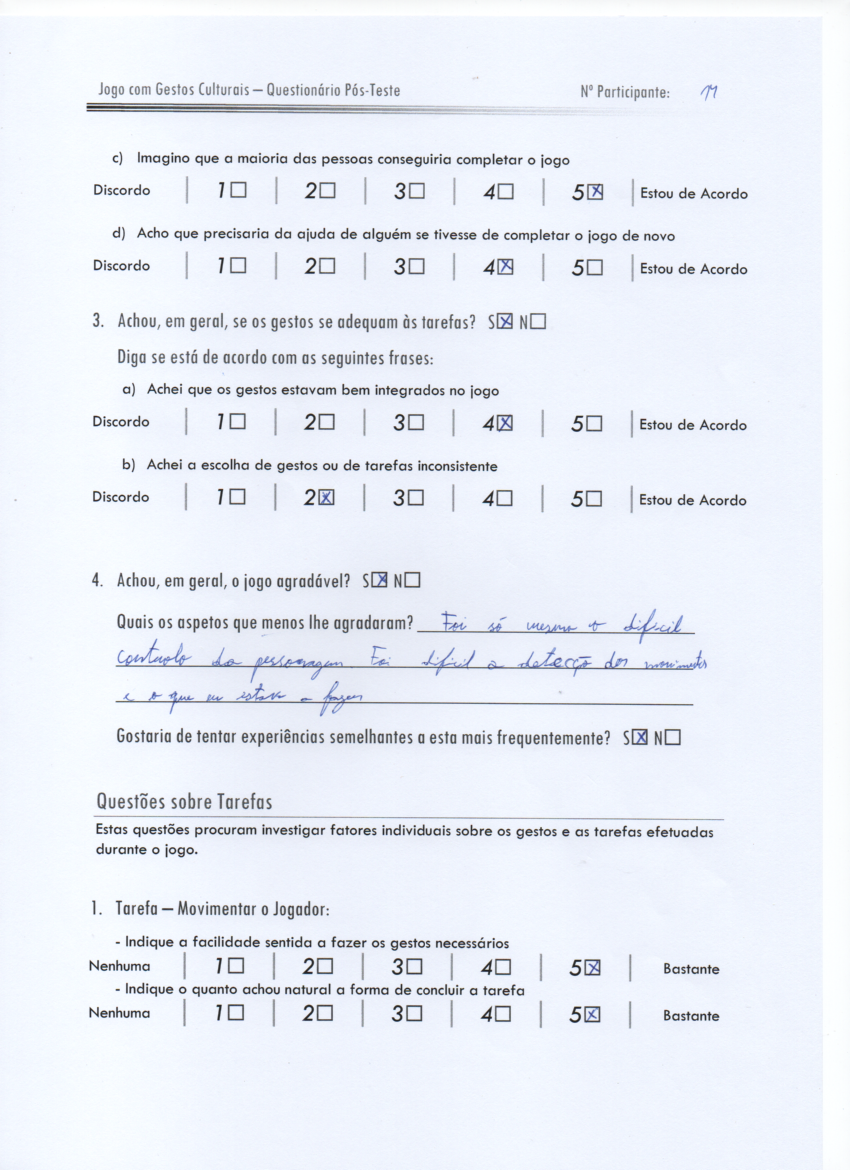 Jogo com Gestos Culturais – Questionário Pós-Teste Nº Participante: 11
c) Imagino que a maioria das pessoas conseguiria completar o jogo
Discordo | 1☐ | 2☐ | 3☐ | 4☐ | 5☒ | Estou de Acordo
d) Acho que precisaria da ajuda de alguém se tivesse de completar o jogo de novo
Discordo | 1☐ | 2☐ | 3☐ | 4☒ | 5☐ | Estou de Acordo
3. Achou, em geral, se os gestos se adequam às tarefas? S☒ N☐
Diga se está de acordo com as seguintes frases:
a) Achei que os gestos estavam bem integrados no jogo
Discordo | 1☐ | 2☐ | 3☐ | 4☒ | 5☐ | Estou de Acordo
b) Achei a escolha de gestos ou de tarefas inconsistente
Discordo | 1☐ | 2☒ | 3☐ | 4☐ | 5☐ | Estou de Acordo
4. Achou, em geral, o jogo agradável? S☒ N☐
Quais os aspetos que menos lhe agradaram? Foi só mesmo o dificil
controlo da personagem. Foi dificil a detecção dos movimentos
e o que eu estava a fazer
Gostaria de tentar experiências semelhantes a esta mais frequentemente? S☒ N☐
Questões sobre Tarefas
Estas questões procuram investigar fatores individuais sobre os gestos e as tarefas efetuadas
durante o jogo.
1. Tarefa – Movimentar o Jogador:
- Indique a facilidade sentida a fazer os gestos necessários
Nenhuma | 1☐ | 2☐ | 3☐ | 4☐ | 5☒ | Bastante
- Indique o quanto achou natural a forma de concluir a tarefa
Nenhuma | 1☐ | 2☐ | 3☐ | 4☐ | 5☒ | Bastante